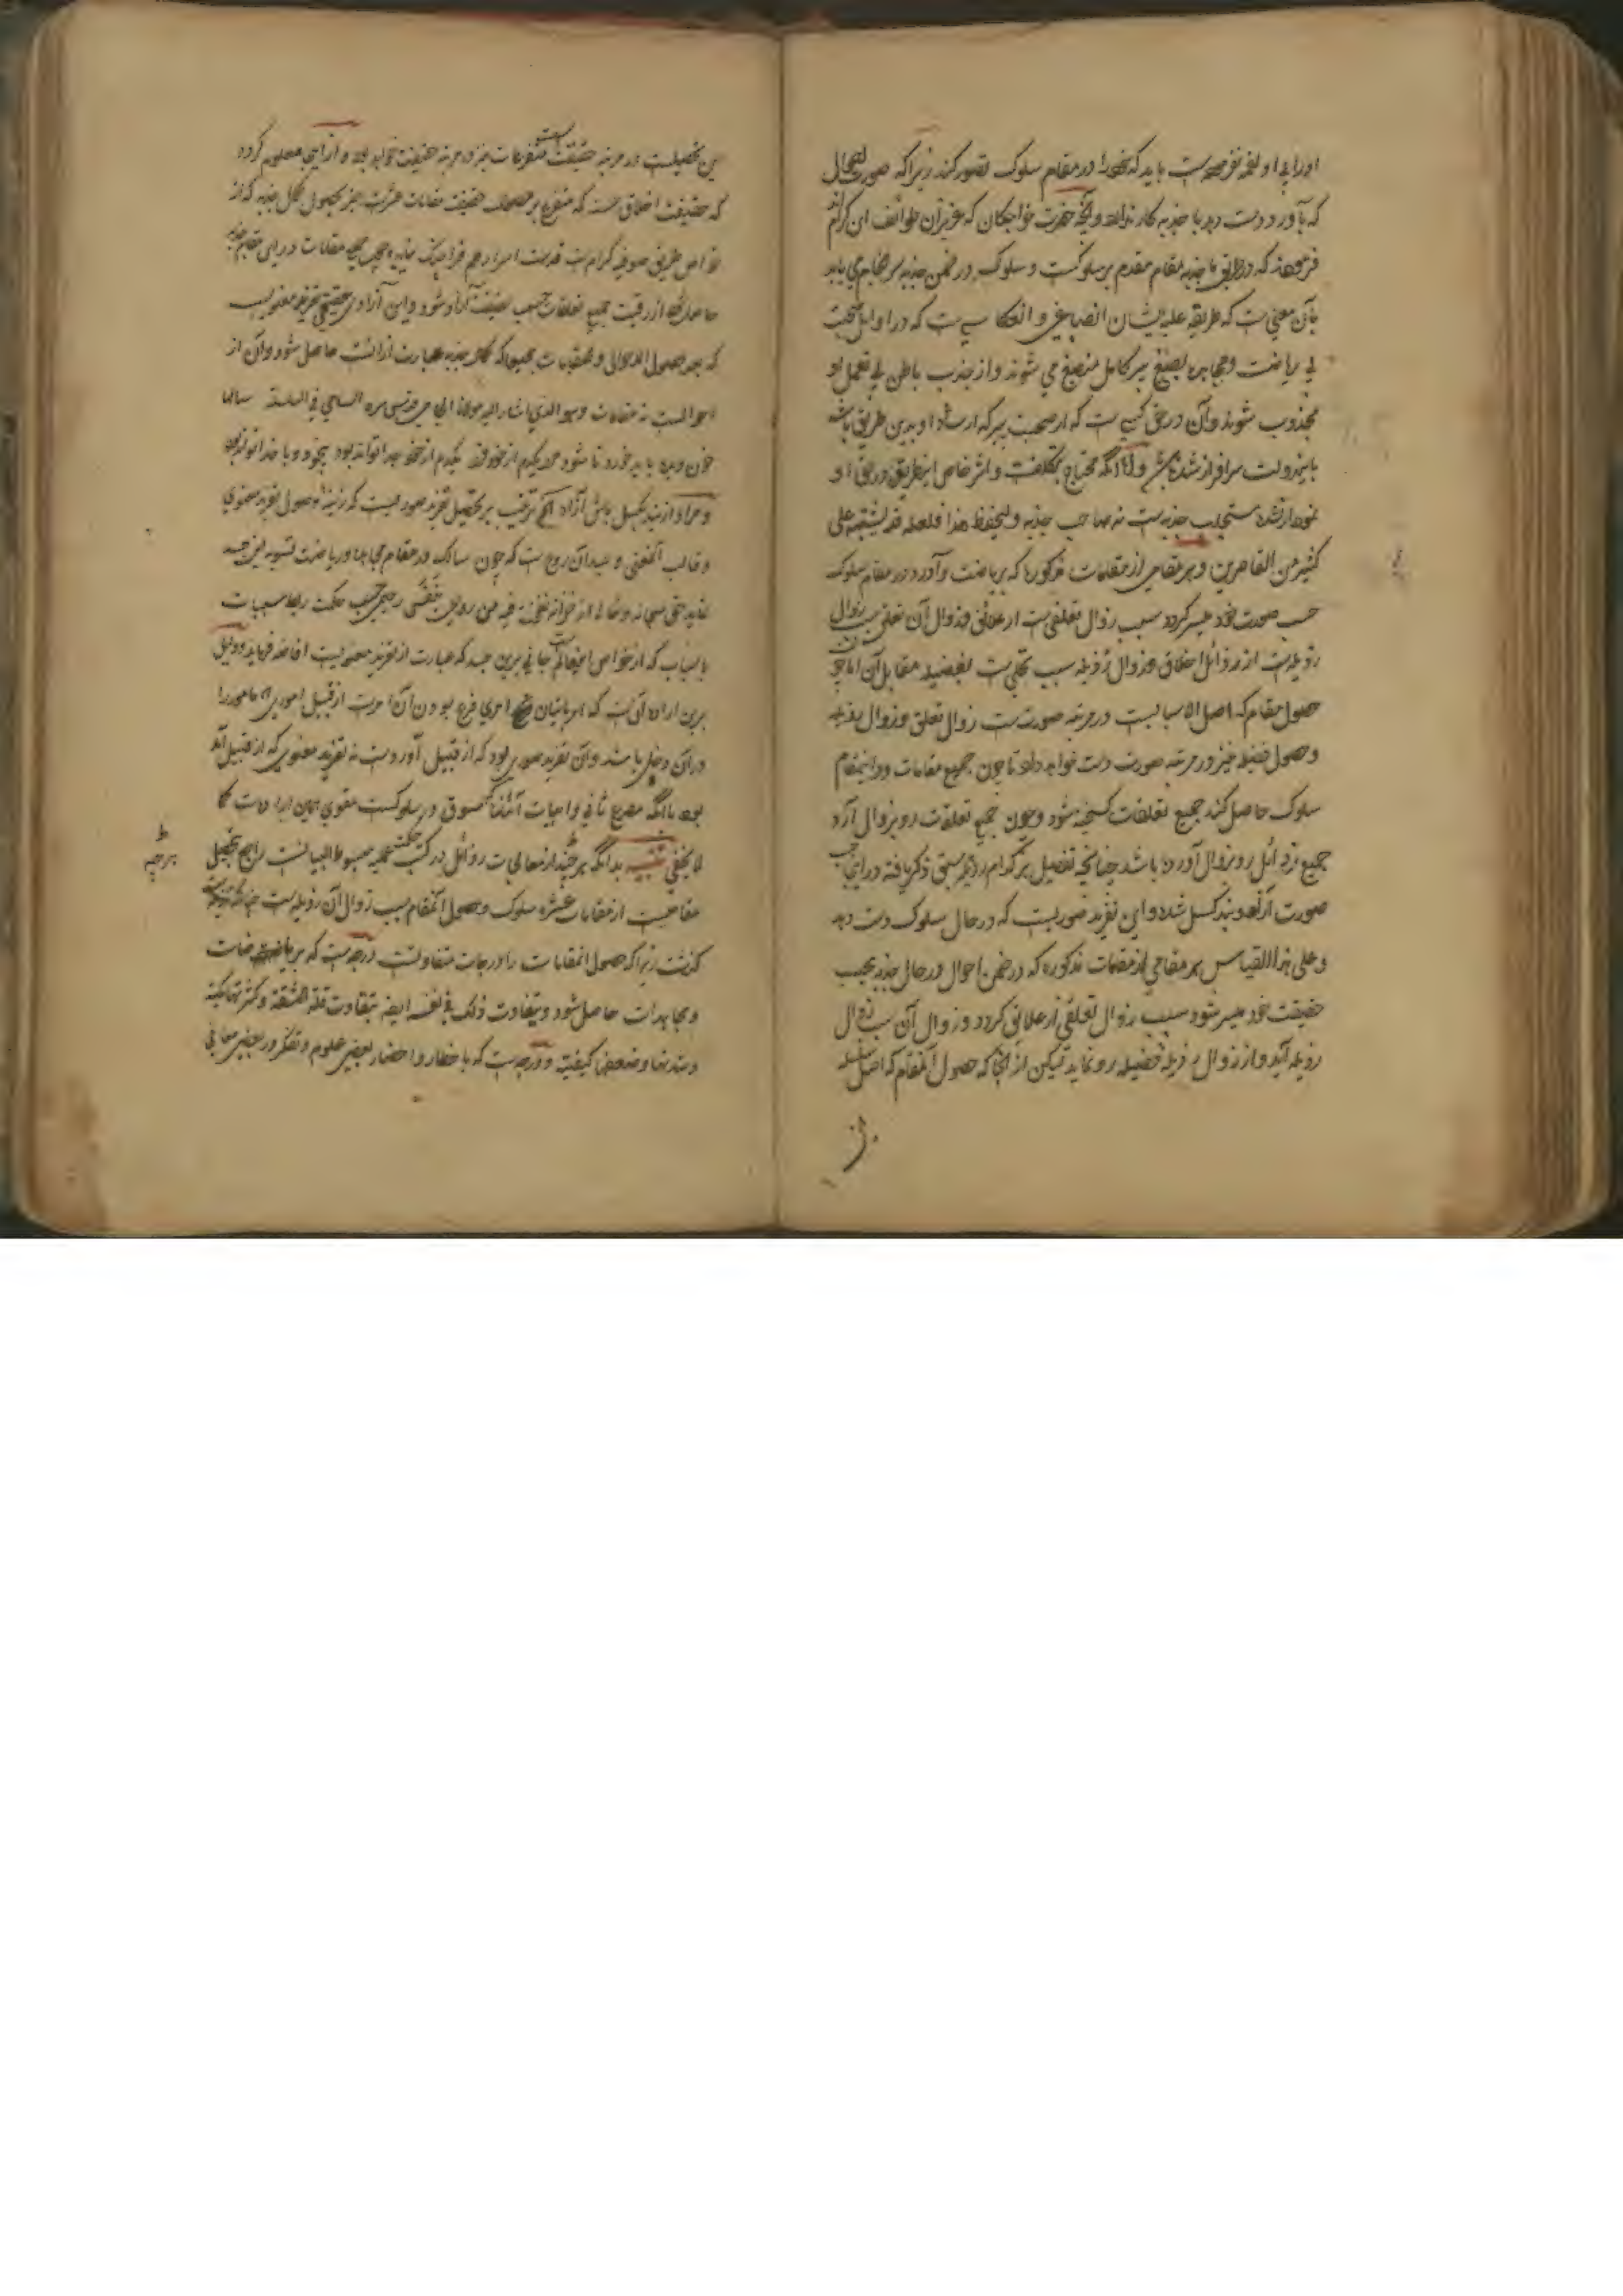 باید که خود را در مقام سلوک تصور کند زیرا که صورت
که بآورد دست دهد با جذبه کار ندارد و آنچه حضرت خواجگان که عزیزان طوائف این
فرموده‌اند که در طریق ما جذبه مقام مقدم بر سلوکست و سلوک در ضمن جذبه سرانجام می یابد
بآن معنی ست که طریقه علیه ایشان انصباغی و انعکاسی ست که در اوایل صحبت
بی ریاضت و مجاهده بصبغ پیر کامل منصبغ می شوند و از جذب باطن بی تعمل او
مجذوب شوند و آن در حق کسی ست که از صحبت پیر که ارشاد او بدین طریق باشد
باین دولت سرافراز شده باشد و الا آنکه محتاج بتکلفست و اثر خاص این طریق در حق او
نمودار نشده مستجلب جذبه ست نه صاحب جذبه ولیحفظ هذا فلعله قد یشتبه علی
کثیر من القاصرین و هر مقامی از مقامات مذکوره که بریاضت و آورد در مقام سلوک
حسب صورت خود میسر گردد سبب زوال تعلقی ست از علائق و زوال آن تعلق سبب زوال
رذیله ست از رذائل اخلاق و زوال رذیله سبب تحلی ست بفضیله مقابل آن اما چون
حصول مقام که اصل الاسبابست در مرتبه صورت ست زوال تعلق و زوال رذیله
و حصول فضیله نیز در مرتبه صورت دست خواهد داد تا چون جمیع مقامات را در مقام
سلوک حاصل کند جمیع تعلقات گسیخته شود و چون جمیع تعلقات رو بزوال آرد
جمیع رذائل رو بزوال آورده باشد چنانچه تفصیل هر کدام رذیله سبق ذکر یافته در اینجا
صورت آزاد و بند گسل شده و این تفرید صوریست که در حال سلوک دست دهد
و علی هذا القیاس هر مقامی از مقامات مذکوره که در ضمن احوال در حال جذبه بحسب
حقیقت خود میسر شود سبب زوال تعلقی از علائق گردد و زوال آن سبب زوال
رذیله آید و از زوال رذیله فضیله رو نماید لیکن از آنجا که حصول آن مقام که اصل سلسله
در مرتبه حقیقت است متفرعات نیز در مرتبه حقیقت خواهد بود و از اینجا معلوم گردد
که حقیقت اخلاق حسنه که متفرع بر حصول حقیقت مقامات عشره است جز بحصول کمال جذبه که از
خواص طریق صوفیه کرام ست قدست اسرارهم فراچنگ نیاید
حاصل شود از رقیت جمیع تعلقات بحسب حقیقت آزاد شود و این آزادی حقیقی تفرید معنویست
حاصل شود و آن از
احوالست نه مقامات و هو الذی اشار الیه مولانا الجامی قدس سره السامی فی السلسلة سالها
خون دیده باید خورد تا شود مرد یکدم از خود فرد یکدم از خود جدا تواند بود بیخود و با خدا تواند بود
و مراد از بند بگسل باش آزاد الخ ترغیب بر تحصیل تفرید صوریست که زینه حصول تفرید معنوی
و قالب آنمعنی و میدان روح ست که چون سالک در مقام مجاهده و ریاضت تسویه این جسد
نماید حق سبحانه و تعالی از خزانه نفخت فیه من روحی نَفَسی رحمی حسب حکمت ربط مسببات
باسباب که از خواص اینعالم ست جانی برین جسد که عبارت از تفرید معنویست افاضه فرماید و دلیل
برین اراده آنست که امر باتیان امری فرع بودن آن امرست از قبیل اموری که مامور را
در آن دخلی باشد و آن تفرید صوری بود که از قبیل آوردست نه تفرید معنوی که از قبیل آمد
بود باآنکه مصرع ثانی و ابیات آئنده که مسوق در سلوکست مقوی همین ارادت کما
لا یخفی تنبیه بدانکه هر چند از معالجات رذائل در کتب حکمت عملیه مبسوط البیانست راجع بتحصیل
مقامیست از مقامات عشره سلوک و حصول آنمقام سبب زوال آن رذیله ست چنانچه
گذشت زیرا که حصول آنمقامات را درجات متفاوتست درجه ست که بریاضات
و مجاهدات حاصل شود و یتفاوت ذلک فی نفسه ایضا بتفاوت قلة المشقة و کثرتها کمیة
و شدتها و ضعفها کیفیة و درجه ست که باخطار و احضار بعضی علوم و تفکر در بعضی معانی